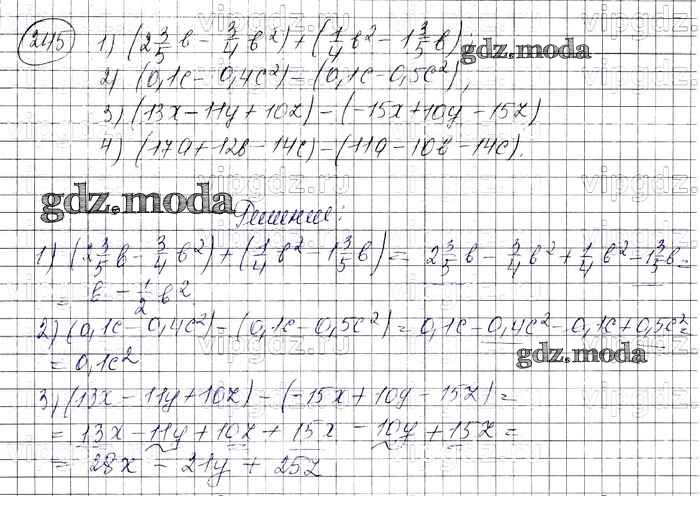 245 1) (2 3/5 b - 3/4 b²) + (1/4 b² - 1 3/5 b);
gdz.moda
2) (0,1c - 0,4c²) - (0,1c - 0,5c²),
3) (13x - 11y + 10z) - (-15x + 10y - 15z)
4) (17a + 12b - 14c) - (11a - 10b - 14c).
gdz.moda
Решение:
1) (2 3/5 b - 3/4 b²) + (1/4 b² - 1 3/5 b) = 2 3/5 b - 3/4 b² + 1/4 b² - 1 3/5 b =
= b - 1/2 b².
2) (0,1c - 0,4c²) - (0,1c - 0,5c²) = 0,1c - 0,4c² - 0,1c + 0,5c² =
= 0,1c²
gdz.moda
3) (13x - 11y + 10z) - (-15x + 10y - 15z) =
= 13x - 11y + 10z + 15x - 10y + 15z =
= 28x - 21y + 25z
vipgdz.ru